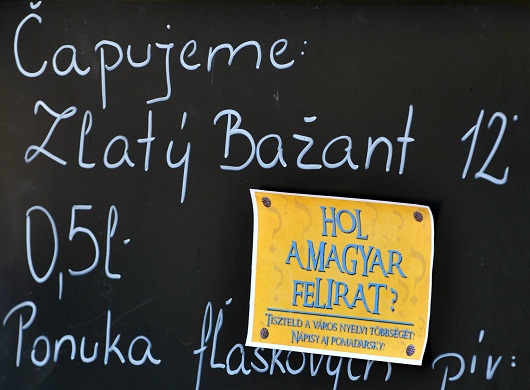 Čapujeme:
Zlatý Bažant 12°
0,5l
HOL
A MAGYAR
FELIRAT?
TISZTELD A VÁROS NYELVI TÖBBSÉGÉT!
NÁPISY AJ POMAĎARSKY!
Ponuka fľaškových pív: